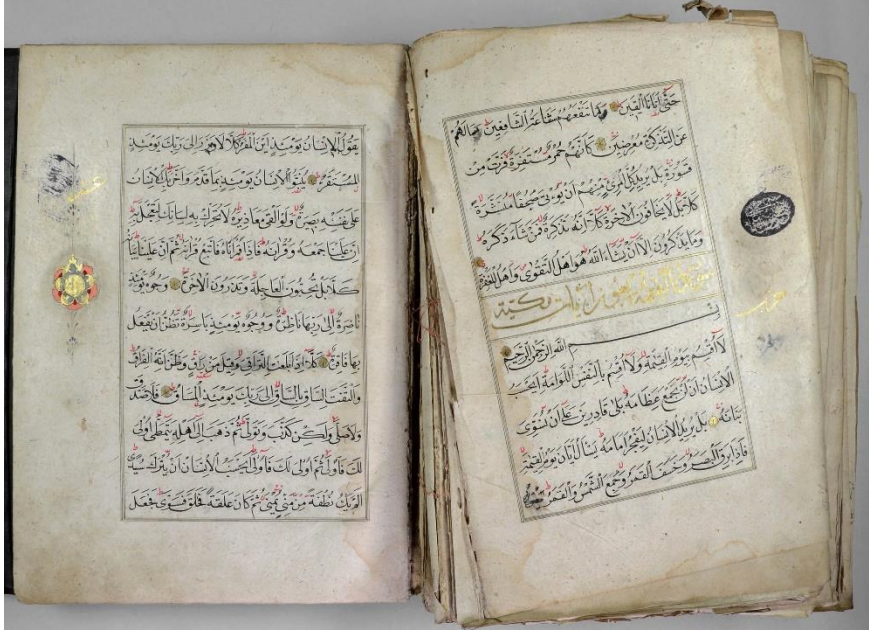 حتى اتانا اليقين فما تنفعهم شفاعة الشافعين فما لهم
عن التذكرة معرضين كانهم حمر مستنفرة فرت من
قسورة بل يريد كل امرئ منهم ان يؤتى صحفا منشرة
كلا بل لا يخافون الاخرة كلا انه تذكرة فمن شاء ذكره
وما يذكرون الا ان يشاء الله هو اهل التقوى واهل المغفرة
مكية
بسم الله الرحمن الرحيم
لا اقسم بيوم القيمة ولا اقسم بالنفس اللوامة ايحسب
الانسان ان لن نجمع عظامه بلى قادرين على ان نسوى
بنانه بل يريد الانسان ليفجر امامه يسال ايان يوم القيمة
فاذا برق البصر وخسف القمر وجمع الشمس والقمر
يقول الانسان يومئذ اين المفر كلا لا وزر الى ربك يومئذ
المستقر ينبؤ الانسان يومئذ بما قدم واخر بل الانسان
على نفسه بصيرة ولو القى معاذيره لا تحرك به لسانك لتعجل به
ان علينا جمعه وقرانه فاذا قراناه فاتبع قرانه ثم ان علينا بيانه
كلا بل تحبون العاجلة وتذرون الاخرة وجوه يومئذ
ناضرة الى ربها ناظرة ووجوه يومئذ باسرة تظن ان يفعل
بها فاقرة كلا اذا بلغت التراقى وقيل من راق وظن انه الفراق
والتفت الساق بالساق الى ربك يومئذ المساق فلا صدق
ولا صلى ولكن كذب وتولى ثم ذهب الى اهله يتمطى اولى
لك فاولى ثم اولى لك فاولى ايحسب الانسان ان يترك سدى
الم يك نطفة من منى يمنى ثم كان علقة فخلق فسوى فجعل